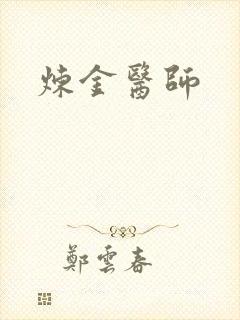 煉金醫師
鄭雲春